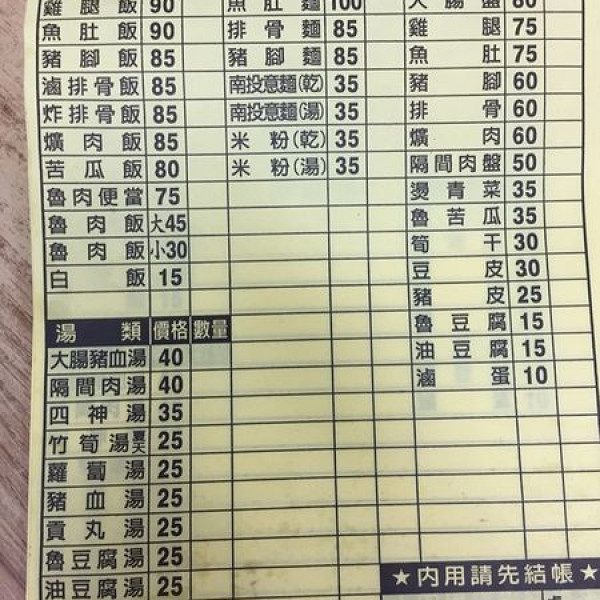 雞腿飯 90
魚肚飯 90
豬腳飯 85
滷排骨飯 85
炸排骨飯 85
爌肉飯 85
苦瓜飯 80
魯肉便當 75
魯肉飯 大45
魯肉飯 小30
白飯 15
湯類 價格 數量
大腸豬血湯 40
隔間肉湯 40
四神湯 35
竹筍湯夏天 25
蘿蔔湯 25
豬血湯 25
貢丸湯 25
魯豆腐湯 25
油豆腐湯 25
魚肚麵 100
排骨麵 85
豬腳麵 85
南投意麵(乾) 35
南投意麵(湯) 35
米粉(乾) 35
米粉(湯) 35
大腸盤 80
雞腿 75
魚肚 75
豬腳 60
排骨 60
爌肉 60
隔間肉盤 50
燙青菜 35
魯苦瓜 35
筍干 30
豆皮 30
豬皮 25
魯豆腐 15
油豆腐 15
滷蛋 10
★內用請先結帳★